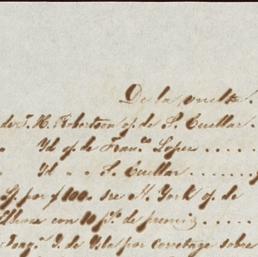 De la vuelta.
de J. H. Robertson o/. de S. Cuellar .
" Yd o/. de Fran.co Lopez . . . . . .
" Yd " " S. Cuellar . . . . . . .
por $100,, sre N. York o/. de
con 10 p% de premio . . . . .
J. de Ysla por corretage sobre